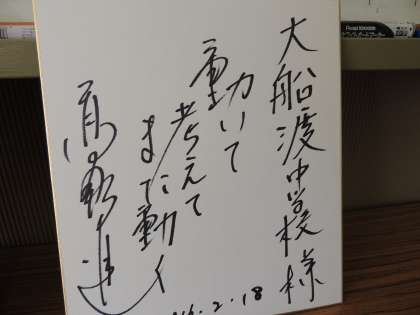 大船渡中学校様
動いて
考えて
また動く
高野進
16.2.18